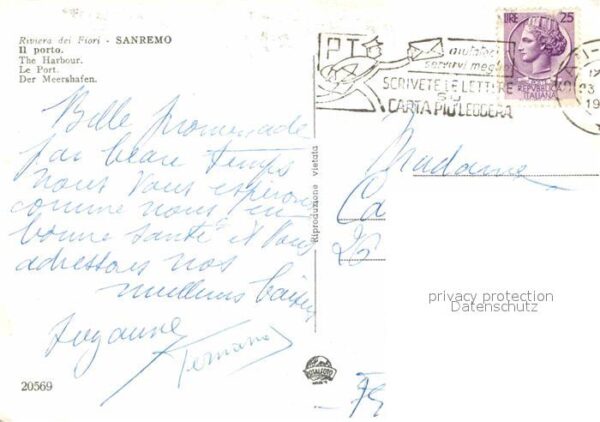 Riviera dei Fiori - SANREMO
Il porto.
The Harbour.
Le Port.
Der Meershafen.
Belle promenade
par beau temps
nous vous espérons
comme nous en
bonne santé et vous
adressons nos
meilleurs baisers
Suzanne
20569
Riproduzione vietata
PT
aiutateci
servirvi meglio
SCRIVETE LE LETTERE
SU
CARTA PIÙ LEGGERA
LIRE 25
REPVBBLICA
ITALIANA
Madame
Ca
privacy protection
Datenschutz